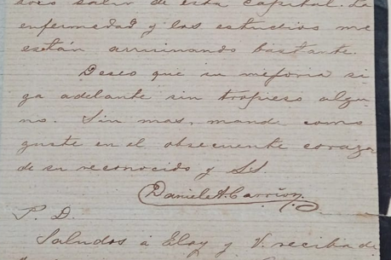 dos salir de esta capital. La
enfermedad y los estudios me
están arruinando bastante.
Deseo que su mejoria si
ga adelante sin tropiezo algu
no. Sin mas, mande como
guste en el obsecuente corazon
de su reconocido y S.S.
Daniel A. Carrión
P. D.
Saludos á Eloy y V. reciba de